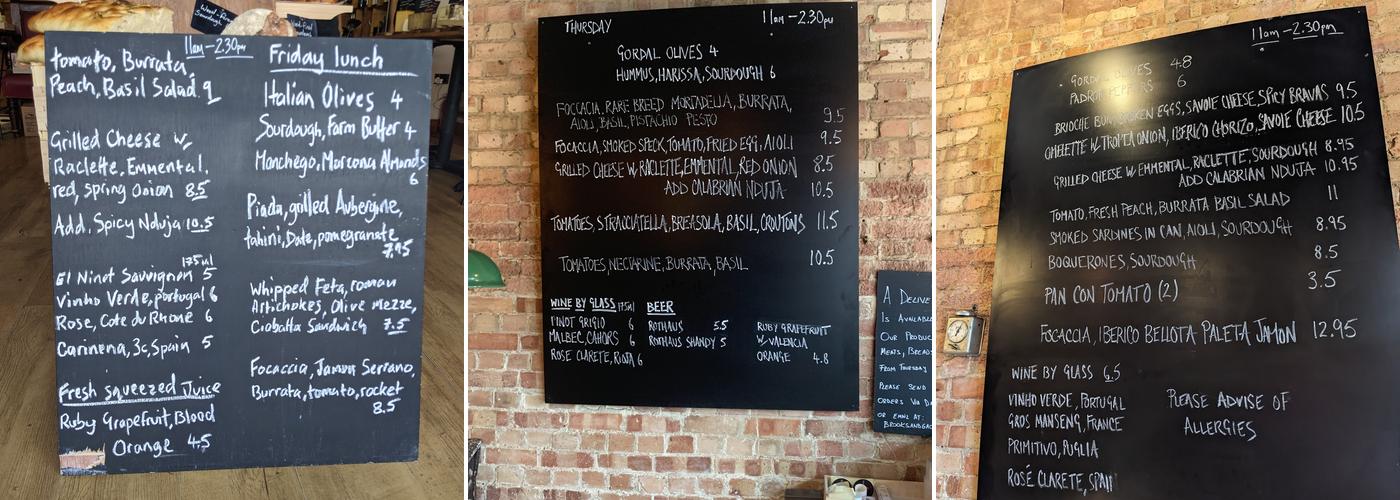 Wood-Fired
Sourdough
11am-2.30pm
tomato, Burrata
Peach, Basil Salad. 9
Grilled Cheese w,
Raclette, Emmental,
red, spring Onion 8.5
Add, Spicy Nduja 10.5
175ml
El Ninot Sauvignon 5
Vinho Verde, portugal 6
Rose, Cote du Rhone 6
Carinena, 3c, Spain 5
Fresh squeezed Juice
Ruby Grapefruit, Blood
Orange 4.5
Friday lunch
Italian Olives 4
Sourdough, Farm Butter 4
Manchego, Marcona Almonds
6
Piada, grilled Aubergine,
tahini, Date, pomegranate
7.95
Whipped Feta, roman
Artichokes, Olive mezze,
Ciabatta Sandwich 7.5
Focaccia, Jamon Serrano,
Burrata, tomato, rocket
8.5
THURSDAY 11am-2.30pm
GORDAL OLIVES 4
HUMMUS, HARISSA, SOURDOUGH 6
FOCCACIA, RARE BREED MORTADELLA, BURRATA,
AIOLI, BASIL, PISTACHIO PESTO 9.5
FOCCACIA, SMOKED SPECK, TOMATO, FRIED EGG, AIOLI 9.5
GRILLED CHEESE W, RACLETTE, EMMENTAL, RED ONION 8.5
ADD CALABRIAN NDUJA 10.5
TOMATOES, STRACCIATELLA, BREASOLA, BASIL, CROUTONS 11.5
TOMATOES, NECTARINE, BURRATA, BASIL 10.5
WINE BY GLASS 175ml
PINOT GRIGIO 6
MALBEC, CAHORS 6
ROSE CLARETE, RIOJA 6
BEER
ROTHAUS 5.5
ROTHAUS SHANDY 5
RUBY GRAPEFRUIT
W. VALENCIA
ORANGE 4.8
A DELIVE
IS AVAILABL
OUR PRODUC
MEATS, BREADS
FROM THURSDAY
PLEASE SEND
ORDERS VIA
OR EMAIL AT:
11am-2.30pm
GORDAL OLIVES 4.8
PADRON PEPPERS 6
BRIOCHE BUN, BROKEN EGGS, SAVOIE CHEESE, SPICY BRAVAS 9.5
OMELETTE W. TROPEA ONION, IBERICO CHORIZO, SAVOIE CHEESE 10.5
GRILLED CHEESE W EMMENTAL, RACLETTE, SOURDOUGH 8.95
ADD CALABRIAN NDUJA 10.95
TOMATO, FRESH PEACH, BURRATA BASIL SALAD 11
SMOKED SARDINES IN CAN, AIOLI, SOURDOUGH 8.95
BOQUERONES, SOURDOUGH 8.5
PAN CON TOMATO (2) 3.5
FOCACCIA, IBERICO BELLOTA PALETA JAMON 12.95
WINE BY GLASS 6.5
VINHO VERDE, PORTUGAL
GROS MANSENG, FRANCE
PRIMITIVO, PUGLIA
ROSÉ CLARETE, SPAIN
PLEASE ADVISE OF
ALLERGIES